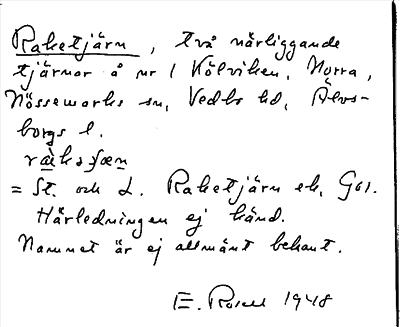 Raketjärn, två närliggande
tjärnar å nr 1 Kölviken, Norra,
Nössemarks sn, Vedbo hd, Älvs-
borgs l.
= St. och L. Raketjärn ek. G61.
Härledningen ej känd.
Namnet är ej allmänt bekant.
E. 1948